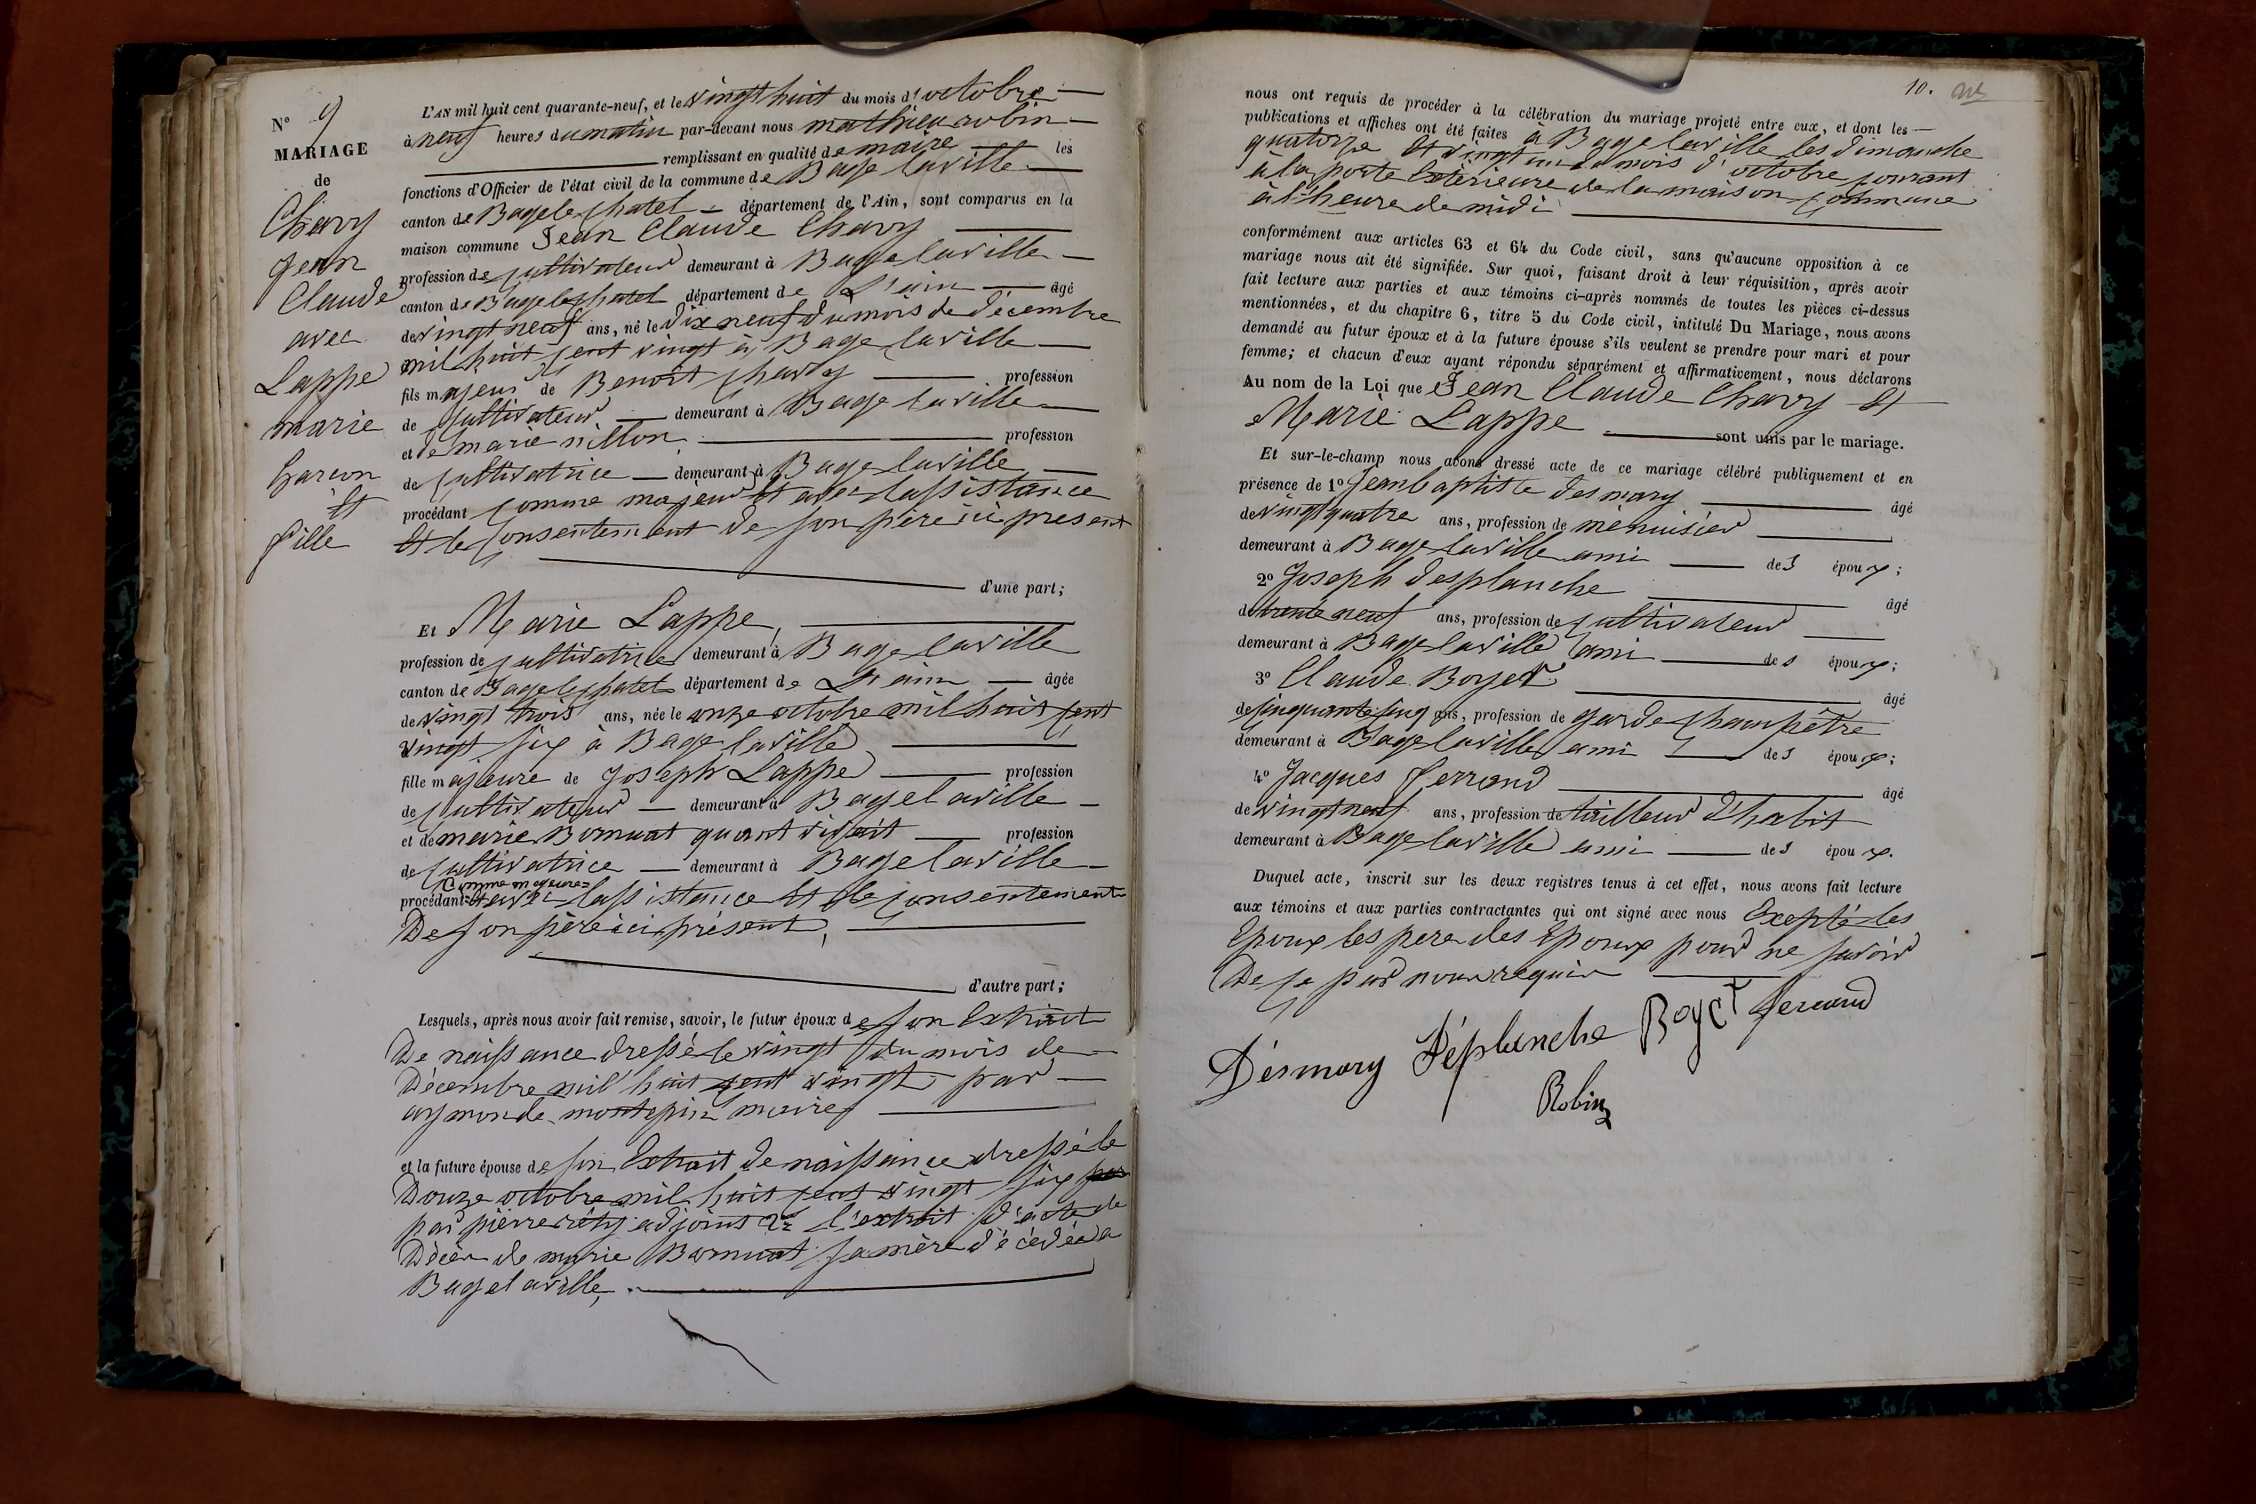 N° 9
MARIAGE
de
Chavy
Jean
Claude
avec
Lappe
marie
Garcon
et
fille
L'AN mil huit cent quarante-neuf, et le vingt huit du mois d'octobre
à neuf heures du matin par-devant nous mathieu robin
remplissant en qualité de maire les
fonctions d'Officier de l'état civil de la commune de Bage laville
canton de Bagelechatel département de l'Ain, sont comparus en la
maison commune Jean Claude Chavy
profession de cultivateur demeurant à Bage laville
canton de Bagelechatel département de L'ain âgé
de vingt neuf ans, né le dix neuf du mois de décembre
mil huit cent vingt à Bage laville
fils majeur de Benoit chavy profession
de cultivateur demeurant à Bage laville
et de marie nillon profession
de cultivatrice demeurant à Bage laville
procédant comme majeur et avec lassistance
et le consentement de son père ici présent
d'une part;
Et Marie Lappe,
profession de cultivatrice demeurant à Bage laville
canton de Bagelechatel département de L'ain âgée
de vingt trois ans, née le onze octobre mil huit cent
vingt six à Bage laville
fille majeure de Joseph Lappe profession
de cultivateur demeurant à Bagelaville
et de marie quant vivait profession
de cultivatrice demeurant à Bage laville
comme majeure
procédant et avec lassistance et le consentement
De son père ici présent,
d'autre part;
Lesquels, après nous avoir fait remise, savoir, le futur époux de son Extrait
De naissance dressé le vingt du mois de
Décembre mil huit cent vingt par
aymon de montepin maire
et la future épouse de son Extrait de naissance dressé le
Douze octobre mil huit cent vingt six par
par pierre adjoint l'extrait d'acte de
Décès de marie sa mère décédée a
Bagelaville,
10.
nous ont requis de procéder à la célébration du mariage projeté entre eux, et dont les
publications et affiches ont été faites à Bage laville les dimanche
quatorze et vingt un du mois d'octobre courant
à la porte Extérieure de la maison commune
à l'heure de midi
conformément aux articles 63 et 64 du Code civil, sans qu'aucune opposition à ce
mariage nous ait été signifiée. Sur quoi, faisant droit à leur réquisition, après avoir
fait lecture aux parties et aux témoins ci-après nommés de toutes les pièces ci-dessus
mentionnées, et du chapitre 6, titre 5 du Code civil, intitulé Du Mariage, nous avons
demandé au futur époux et à la future épouse s'ils veulent se prendre pour mari et pour
femme; et chacun d'eux ayant répondu séparément et affirmativement, nous déclarons
Au nom de la Loi que Jean Claude Chavy et
Marie Lappe sont unis par le mariage.
Et sur-le-champ nous avons dressé acte de ce mariage célébré publiquement et en
présence de 1° Jean baptiste desmary âgé
de vingt quatre ans, profession de menuisier
demeurant à Bage laville ami des époux;
2° Joseph desplanche âgé
de trente neuf ans, profession de cultivateur
demeurant à Bage laville ami des époux;
3° Claude Boyet âgé
de cinquante cinq ans, profession de garde champêtre
demeurant à Bage laville ami des époux;
4° Jacques ferrand âgé
de vingt neuf ans, profession de tailleur d'habit
demeurant à Bage laville ami des époux.
Duquel acte, inscrit sur les deux registres tenus à cet effet, nous avons fait lecture
aux témoins et aux parties contractantes qui ont signé avec nous Excepté les
Epoux les pere des Epoux pour ne savoir
De ce par nous requis
Désmary Déplanche Boyet ferrand
Robin